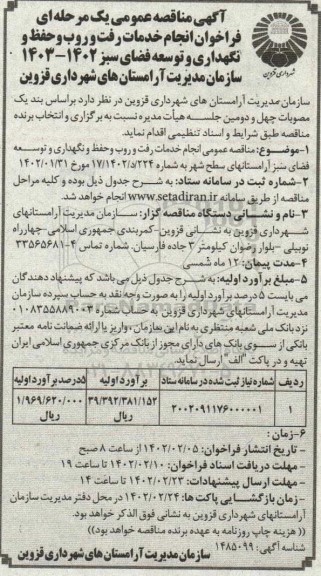 آگهی مناقصه عمومی یک مرحله ای
فراخوان انجام خدمات رفت و روب و حفظ و
نگهداری و توسعه فضای سبز ۱۴۰۲-۱۴۰۳
سازمان مدیریت آرامستان های شهرداری قزوین
شهرداری قزوین
سازمان مدیریت آرامستان های شهرداری قزوین در نظر دارد براساس بند یک
مصوبات چهل و دومین جلسه هیأت مدیره نسبت به برگزاری و انتخاب برنده
مناقصه طبق شرایط و اسناد تنظیمی اقدام نماید.
۱-موضوع: مناقصه عمومی انجام خدمات رفت و روب و حفظ و نگهداری و توسعه
فضای سبز آرامستانهای سطح شهر به شماره ۲۲۴/د/۱۷/۱۴۰۲ مورخ ۱۴۰۲/۰۱/۳۱
۲-شماره ثبت در سامانه ستاد: به شرح جدول ذیل بوده و کلیه مراحل
مناقصه از طریق سامانه www.setadiran.ir انجام خواهد شد.
۳-نام و نشانی دستگاه مناقصه گزار: سازمان مدیریت آرامستانهای
شهرداری قزوین به نشانی قزوین-کمربندی جمهوری اسلامی-چهارراه
نوبیلی -بلوار رضوان کیلومتر ۳ جاده فارسیان. شماره تماس ۴-۳۳۵۶۵۶۸۱
۴-مدت پیمان: ۱۲ ماه شمسی
۵-مبلغ برآورد اولیه: به شرح جدول ذیل می باشد که پیشنهاد دهندگان
می بایست ۵ درصد برآورد اولیه را به صورت وجه نقد به حساب سپرده سازمان
مدیریت آرامستانهای شهرداری قزوین به حساب شماره ۰۱۰۸۳۵۵۸۸۹۰۰۳
نزد بانک ملی شعبه منتظری به نام این سازمان، واریز یا ارائه ضمانت نامه معتبر
بانکی از سوی بانک های دارای مجوز از بانک مرکزی جمهوری اسلامی ایران
تهیه و در پاکت "الف" ارسال نماید.
ردیف شماره نیاز ثبت شده در سامانه ستاد برآورد اولیه ۵درصد برآورد اولیه
۱ ۲۰۰۲۰۹۱۱۷۶۰۰۰۰۰۱ ۳۹/۳۹۲/۳۸۱/۱۵۲ ریال ۱/۹۶۹/۶۲۰/۰۰۰ ریال
۶-زمان :
- تاریخ انتشار فراخوان: ۱۴۰۲/۰۲/۰۵ از ساعت ۸ صبح
- مهلت دریافت اسناد فراخوان: ۱۴۰۲/۰۲/۱۰ تا ساعت ۱۹
- مهلت ارسال پیشنهادات: ۱۴۰۲/۰۲/۲۳ تا ساعت ۱۴
- زمان بازگشایی پاکت ها: ۱۴۰۲/۰۲/۲۴ در محل دفتر مدیریت سازمان
آرامستانهای شهرداری قزوین به نشانی فوق الذکر خواهد بود.
(( هزینه چاپ روزنامه به عهده برنده مناقصه خواهد بود))
شناسه آگهی: ۱۴۸۵۰۹۹
سازمان مدیریت آرامستان های شهرداری قزوین